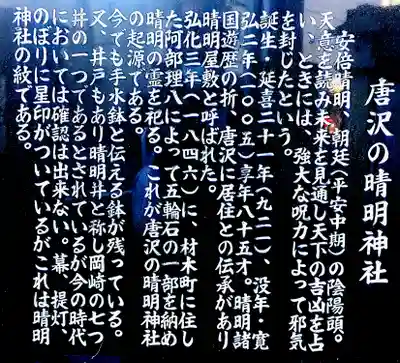 唐沢の晴明神社
安倍晴明、朝廷(平安中期)の陰陽頭。
天意を読み未来を見通し天下の吉凶を占
い、ときには、強大な呪力によって邪気
を封じたという。
誕生・延喜二十一年(九二一)、没年・寛
弘二年(一〇〇五)享年八十五才。晴明諸
国遊歴の折、唐沢に居住との伝承があり
晴明屋敷と呼ばれた。
弘化三年(一八四六)に、材木町に住し
た阿部理八によって五輪石の一部を納め
晴明の霊を祀る。これが唐沢の晴明神社
の起源である。
今でも手水鉢と伝える鉢が残っている。
又、井戸もあり晴明井と称し岡崎の七つ
井の一つであるとされているが今の時代
においては確認は出来ない。幕、提灯、
のぼりに星印がついているがこれは晴明
神社の紋である。